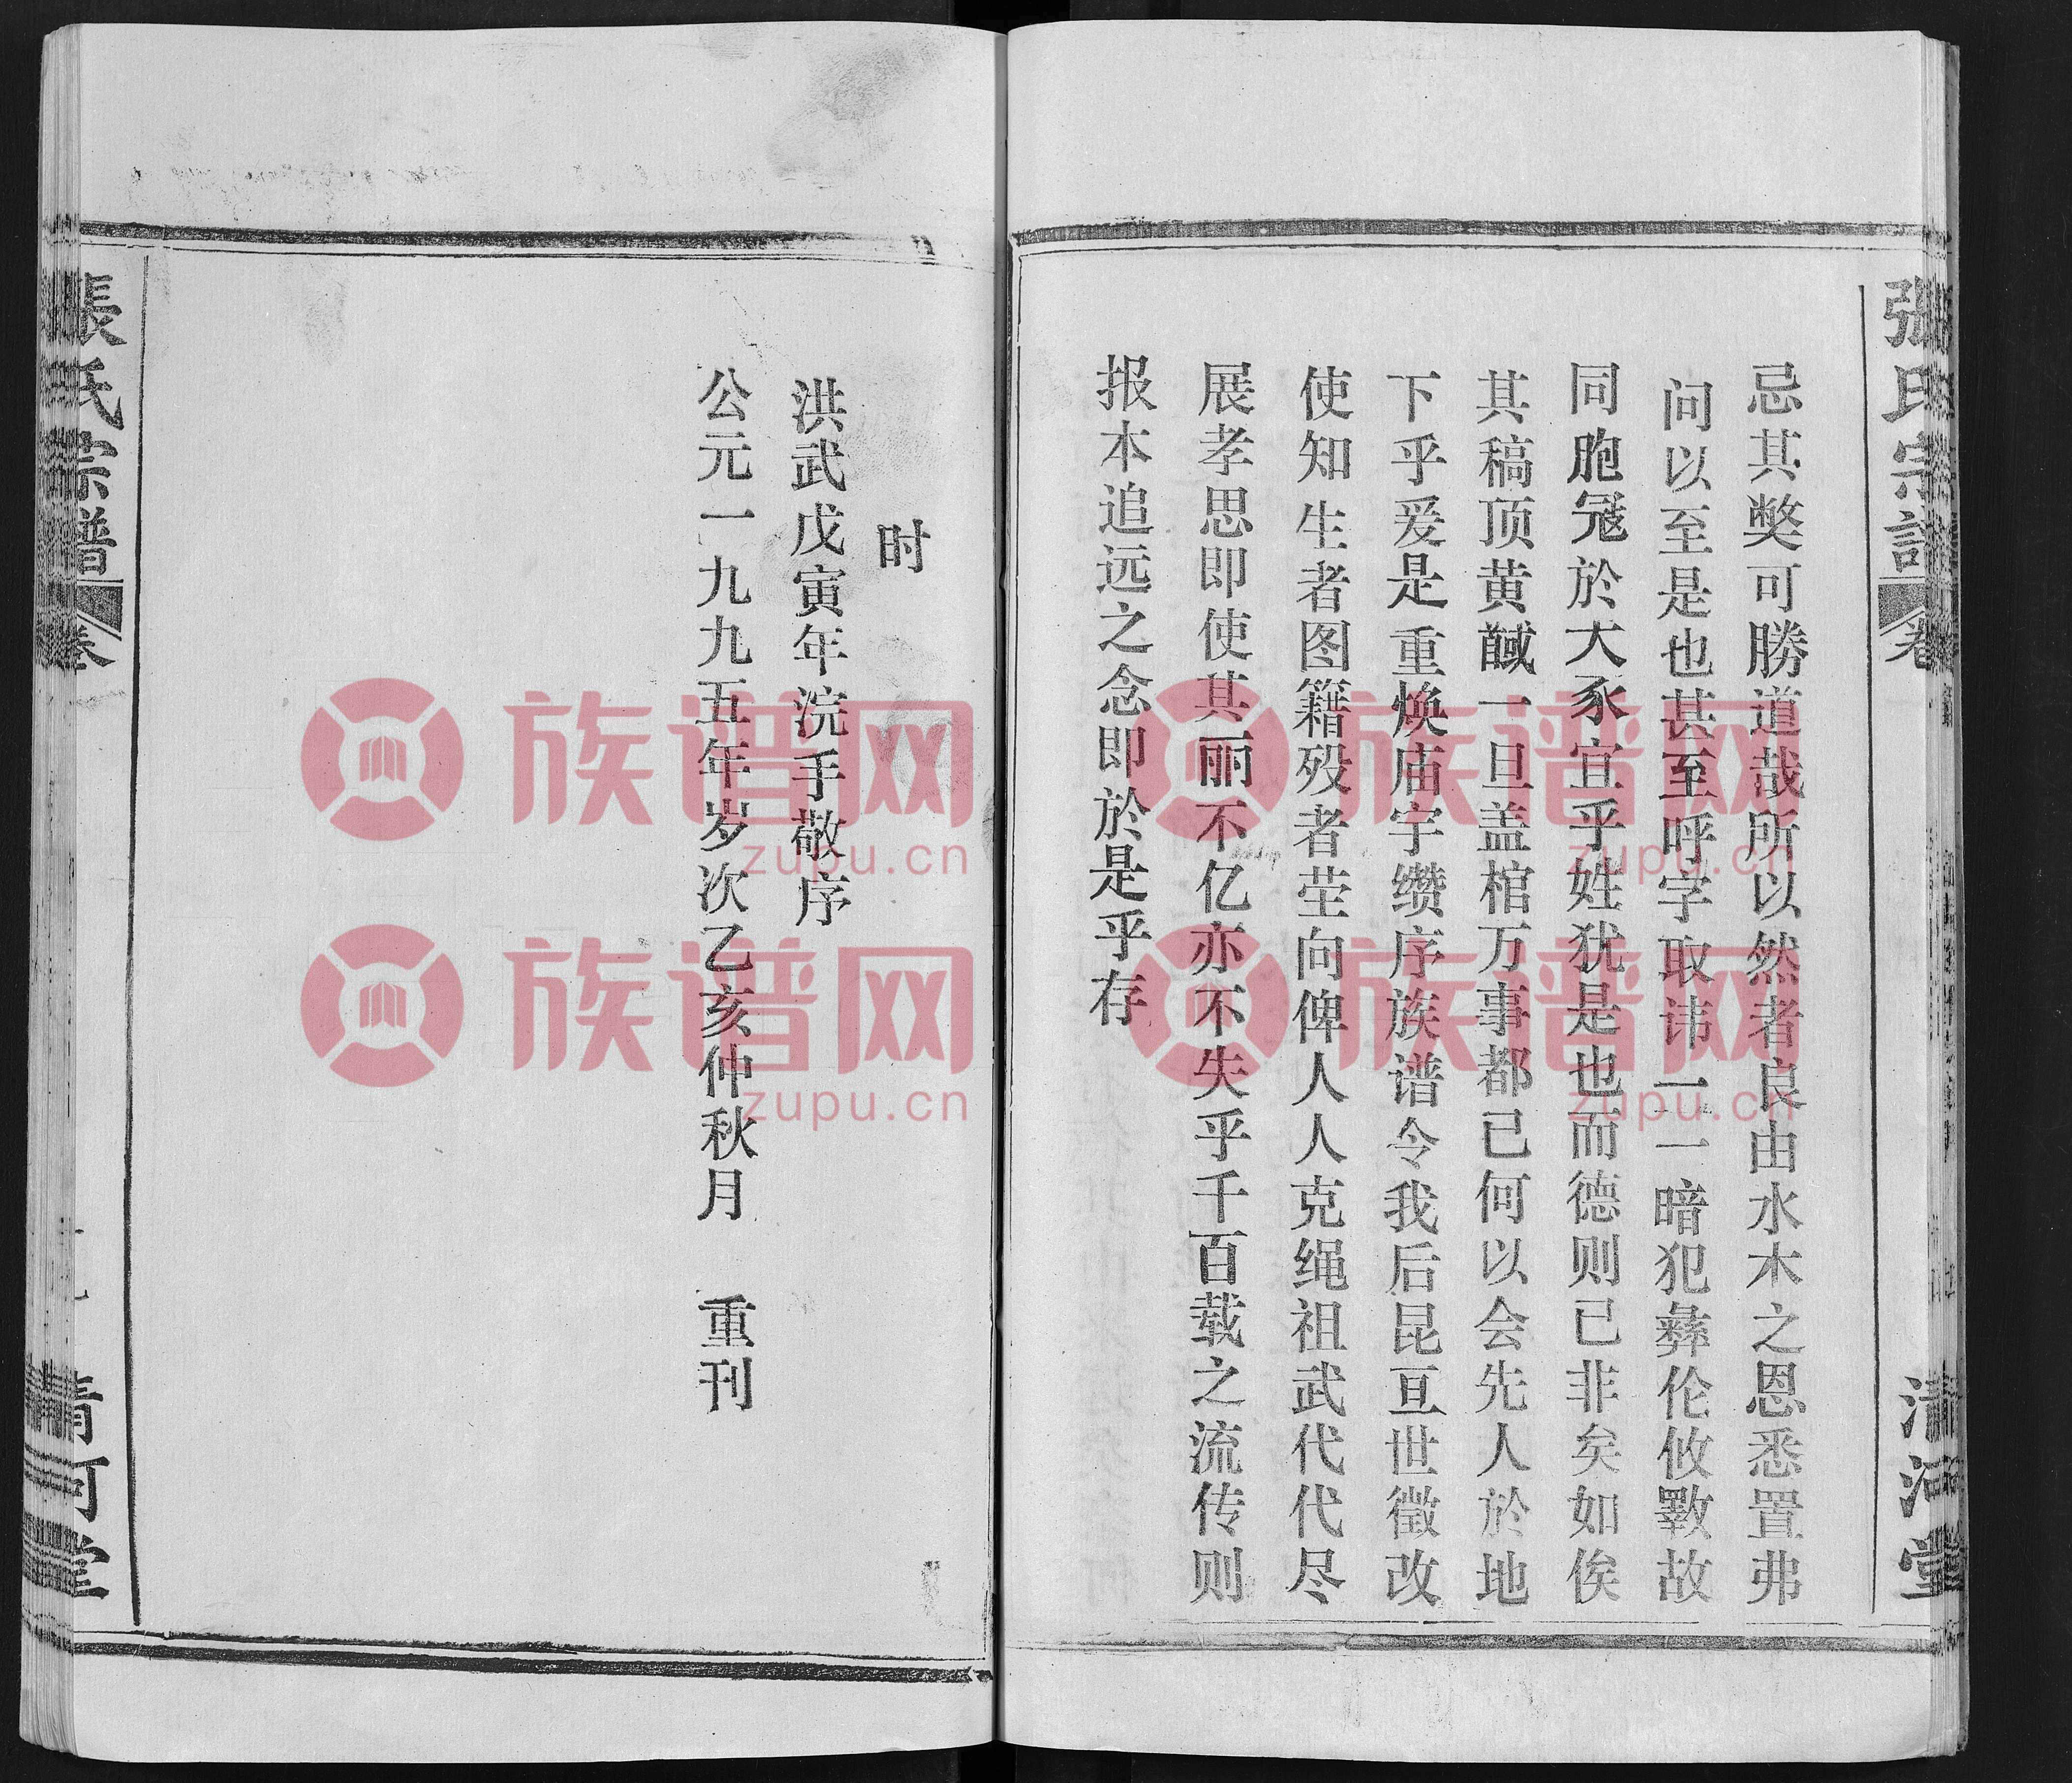 张氏宗谱 卷
清河堂
忌其獘可勝道哉所以然者良由水木之恩悉置弗
问以至是也甚至呼字取讳一一暗犯彝伦攸斁故
同胞冠於大豕宜乎姓犹是也而德则已非矣如俟
其稿顶黄馘一旦盖棺万事都已何以会先人於地
下乎爰是重焕庙宇缵序族谱令我后昆亘世徵改
使知生者图籍殁者茔向俾人人克绳祖武代代尽
展孝思即使其丽不亿亦不失乎千百载之流传则
报本追远之念即於是乎存
时
洪武戊寅年浣手敬序
公元一九九五年岁次乙亥仲秋月 重刊
張氏宗譜 卷
清河堂
族谱网
zupu.cn
族谱网
zupu.cn
族谱网
zupu.cn
族谱网
zupu.cn